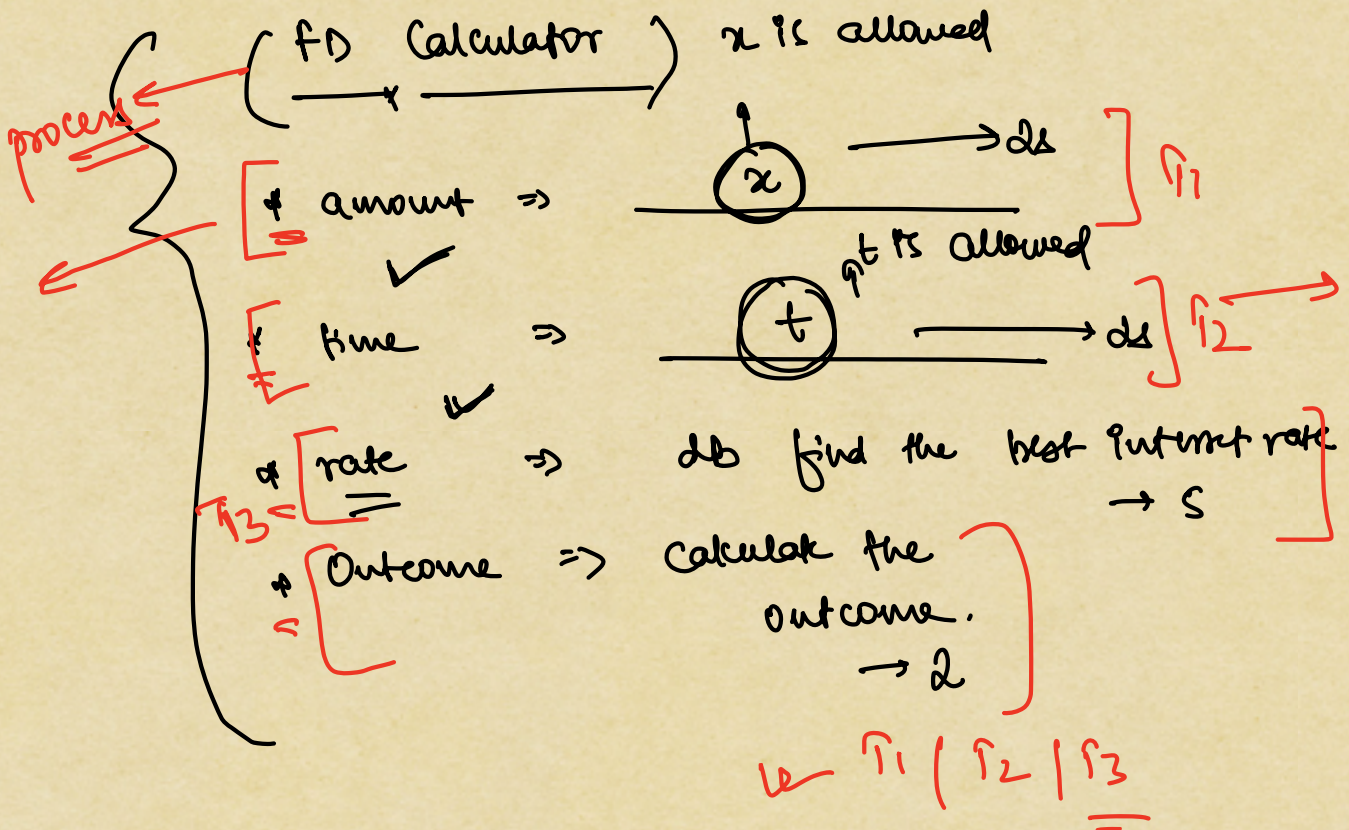 FD Calculator x is allowed
process
* amount => x → 2s T1
t is allowed
* time => t → 2s T2
* rate => db find the best interest rate
T3 → 5
* Outcome => Calculate the
outcome.
→ 2
T1 | T2 | T3